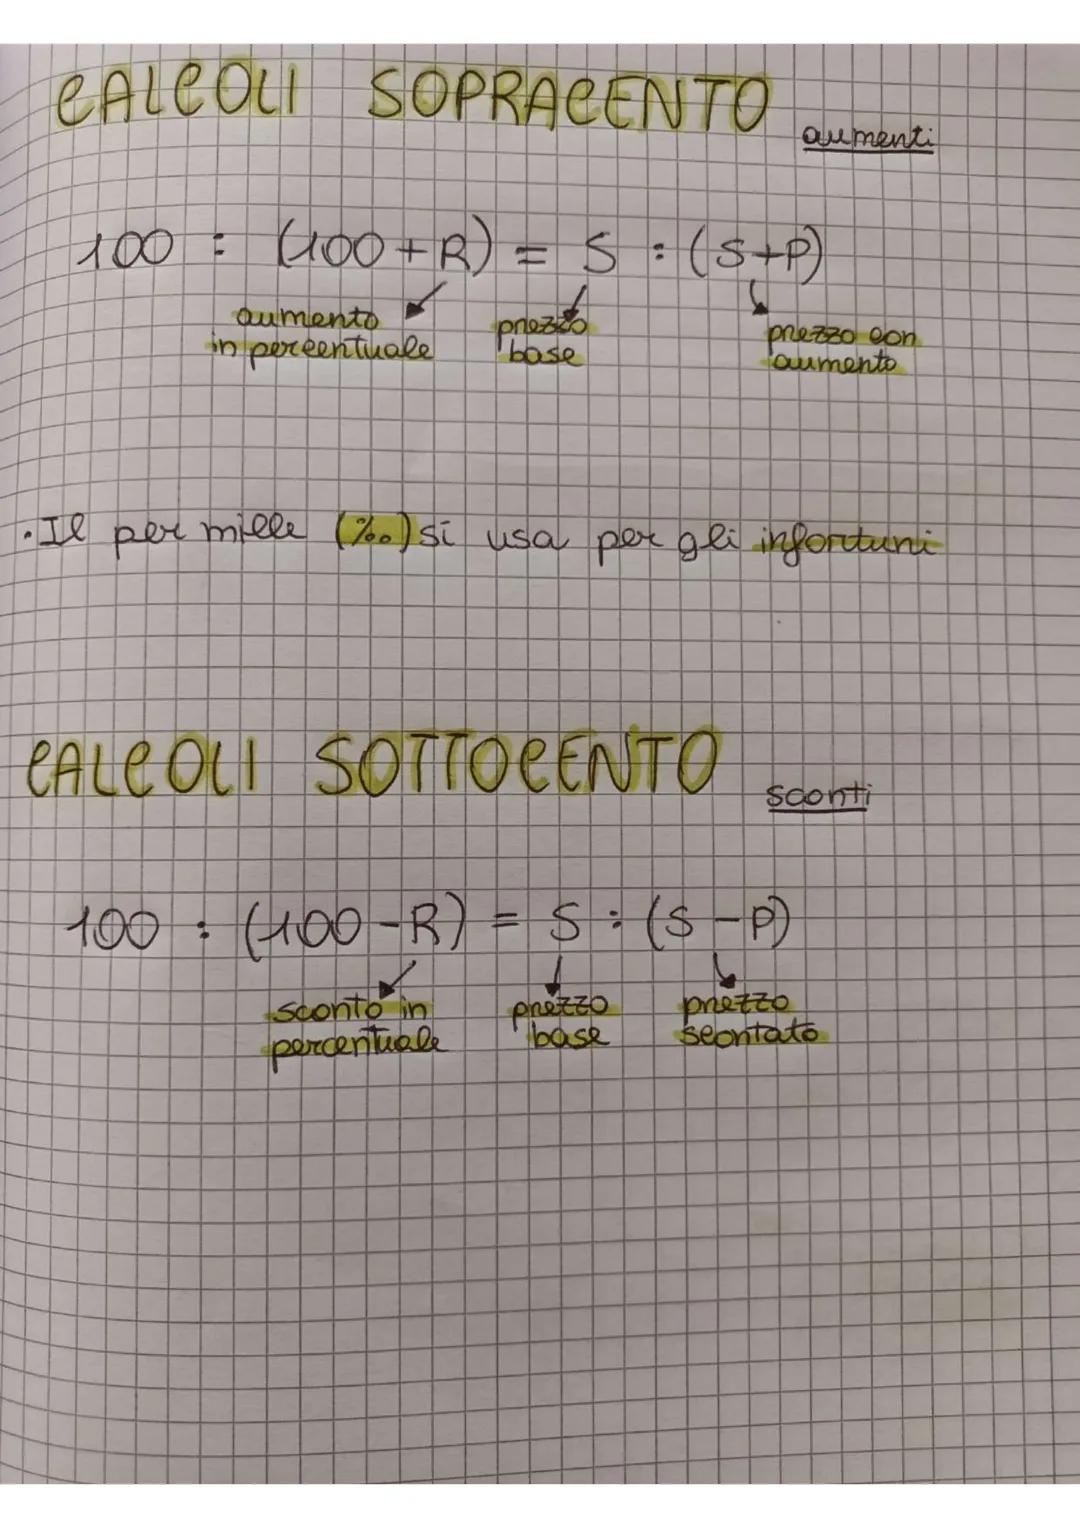 CALCOLI SOPRACENTO aumenti
100 : (100+R) = S : (S+P)
aumento in percentuale
prezzo base
prezzo con aumento
• Il per mille (‰) si usa per gli infortuni
CALCOLI SOTTOCENTO sconti
100 : (100-R) = S : (S-P)
sconto in percentuale
prezzo base
prezzo scontato